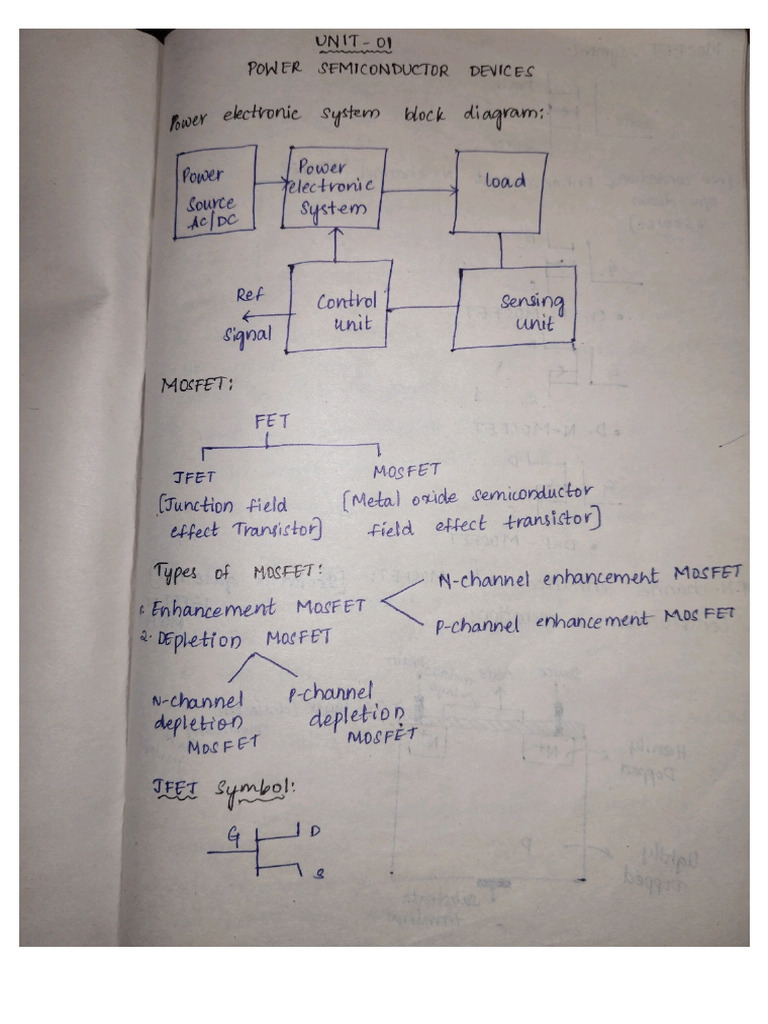 UNIT-01
POWER SEMICONDUCTOR DEVICES
Power electronic system block diagram:
Power
Source
AC/DC
Power
electronic
System
load
Ref
Signal
Control
unit
Sensing
unit
MOSFET:
FET
JFET
[Junction field
effect Transistor]
MOSFET
[Metal oxide semiconductor
field effect transistor]
Types of MOSFET:
1. Enhancement MOSFET
N-channel enhancement MOSFET
P-channel enhancement MOSFET
2. DEpletion MOSFET
N-channel
depletion
MOSFET
P-channel
depletion
MOSFET
JFET Symbol:
G
D
S